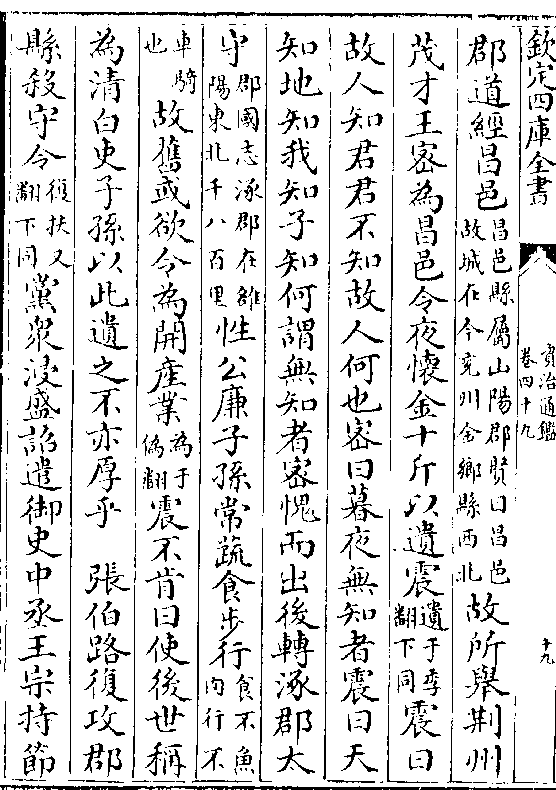 欽定四庫全書
資治通鑑
卷四十九
十九
郡道經昌邑昌邑縣屬山陽郡賢曰昌邑故城在今兖州金鄉縣西北故所舉荆州
茂才王密為昌邑令夜懷金十斤以遺震遺于季翻下同震曰
故人知君君不知故人何也密曰暮夜無知者震曰天
知地知我知子知何謂無知者密愧而出後轉涿郡太
守郡國志涿郡在雒陽東北千八百里性公廉子孫常蔬食步行食不魚肉行不
車騎也故舊或欲令為開產業為于偽翻震不肯曰使後世稱
為清白吏子孫以此遺之不亦厚乎　張伯路復攻郡
縣殺守令復扶又翻下同黨衆浸盛詔遣御史中丞王宗持節